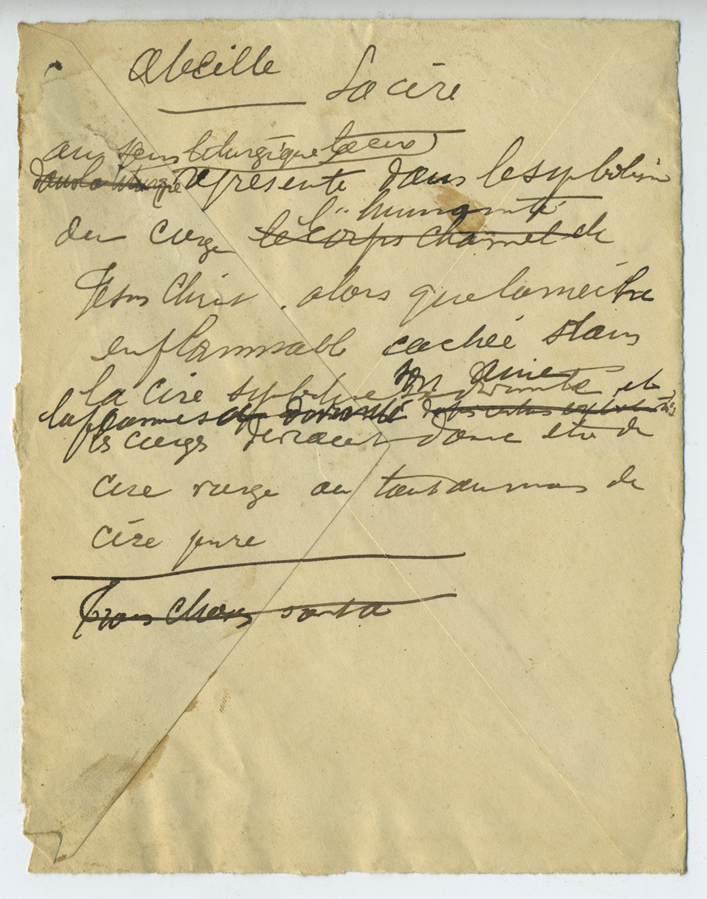 Abeille
La cire
au sens liturgique
dans la liturgie représente dans le symbolisme
l'humanité
du cierge le corps charnel de
Jésus Christ. alors que la mèche
enflammable cachée dans
la cire symbolise son âme et
la flamme sa divinité
les cierges devraient donc être de
cire vierge ou tout au moins de
cire pure
Trois choses sont à